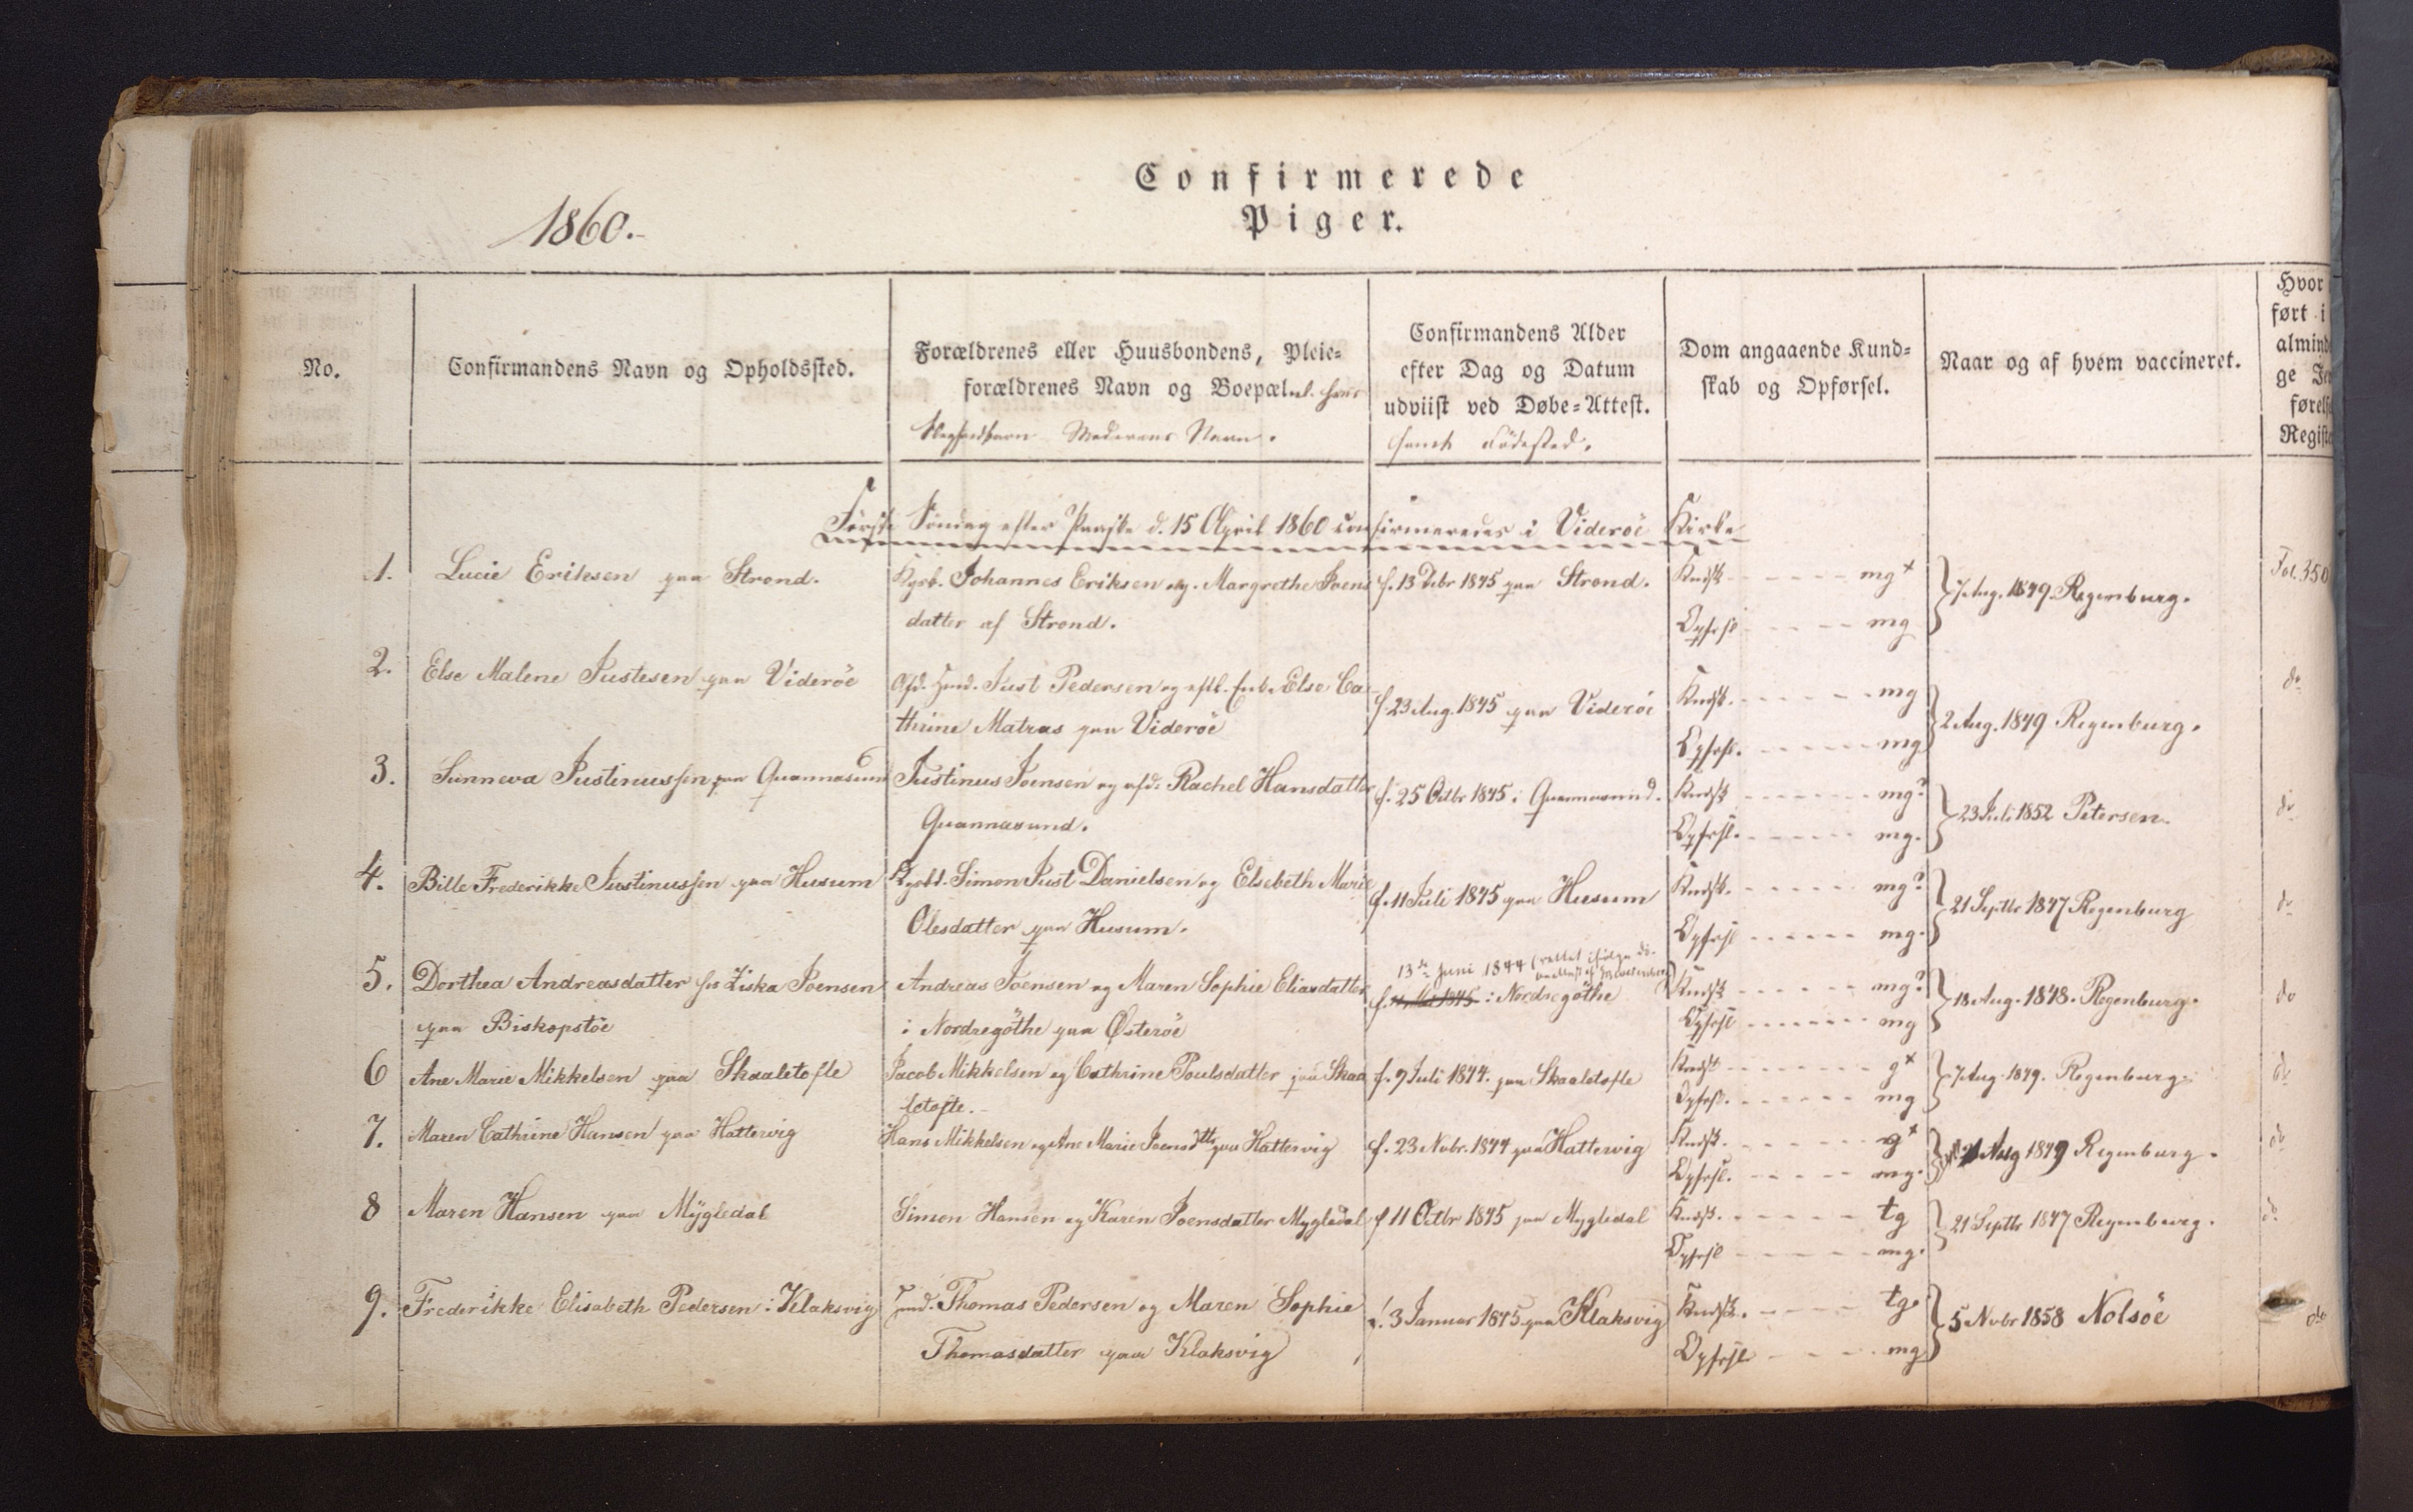 Confirmerede
Piger.
1860.
No.
Confirmandens Navn og Opholdssted.
Forældrenes eller Huusbondens, Pleie=
forældrenes Navn og Boepæl
Moderens Navn.
Confirmandens Alder
efter Dag og Datum
udviist ved Døbe=Attest.
samt Födested.
Dom angaaende Kund=
skab og Opførsel.
Naar og af hvem vaccineret.
Hvor
ført i
almind
ge
førels
Regist
Första Söndag efter Paaske d. 15 April 1860 confirmeredes i Viderøe Kirke
1. Lucie Eriksen paa Strond. Johannes Eriksen og Margrethe Joens f. 13 Debr 1845 paa Strond. Kndsk mg+ 7 Aug. 1849 Regenburg. Fol. 350
datter af Strond. Opførsl mg
2. Else Malene Justesen paa Viderøe Just Pedersen og Else Ca f. 23 Aug. 1845 paa Viderøe Kndsk. mg 2 Aug. 1849 Regenburg. do
thrine Matras paa Viderøe Opførsl. mg
3. Sunneva Justinussen paa Quannasund Justinus Joensen og afd. Rachel Hansdatter f. 25 Octbr 1845 i Quannasund. Kndsk mg? 23 Juli 1852 Petersen. do
Quannasund. Opførsl. mg.
4. Bille Frederikke Justinussen paa Husum Simon Just Danielsen og Elsebeth Marie f. 11 Juli 1845 paa Husum Kndsk. mg? 21 Septbr 1847 Regenburg do
Olesdatter paa Husum. Opførsl mg.
13de Juni 1844 (rettet ifølge
5. Dorthea Andreasdatter hos Ziska Joensen Andreas Joensen og Maren Sophie Eliasdatter f. 1845 i Nordregöthe Kndsk mg? 18 Aug. 1848. Regenburg. do
paa Biskopstöe i Nordregöthe paa Østerøe Opførsl mg
6 Ane Marie Mikkelsen paa Skaaletofte Jacob Mikkelsen og Cathrine Poulsdatter paa Skaa f. 9 Juli 1844. paa Skaaletofte Kndsk g+ 7 Aug. 1849. Regenburg. do
letofte. Opførsl. mg
7. Maren Cathrine Hansen paa Hattervig Hans Mikkelsen og Ane Marie Joensdttr paa Hattervig f. 23 Novbr. 1844 paa Hattervig Kndsk. g+ Aug 1849 Regenburg. do
Opførsl. mg.
8 Maren Hansen paa Mÿgledal Simon Hansen og Karen Joensdatter Mygledal f 11 Octbr 1845 paa Mygledal Kndsk. tg 21 Septbr 1847 Regenburg. do
Opførsl mg.
9. Frederikke Elisabeth Pedersen i Klaksvig Thomas Pedersen og Maren Sophie f. 3 Januar 1845 paa Klaksvig Kndsk. tg. 5 Novbr 1858 Nolsöe do
Thomasdatter paa Klaksvig Opførsl mg